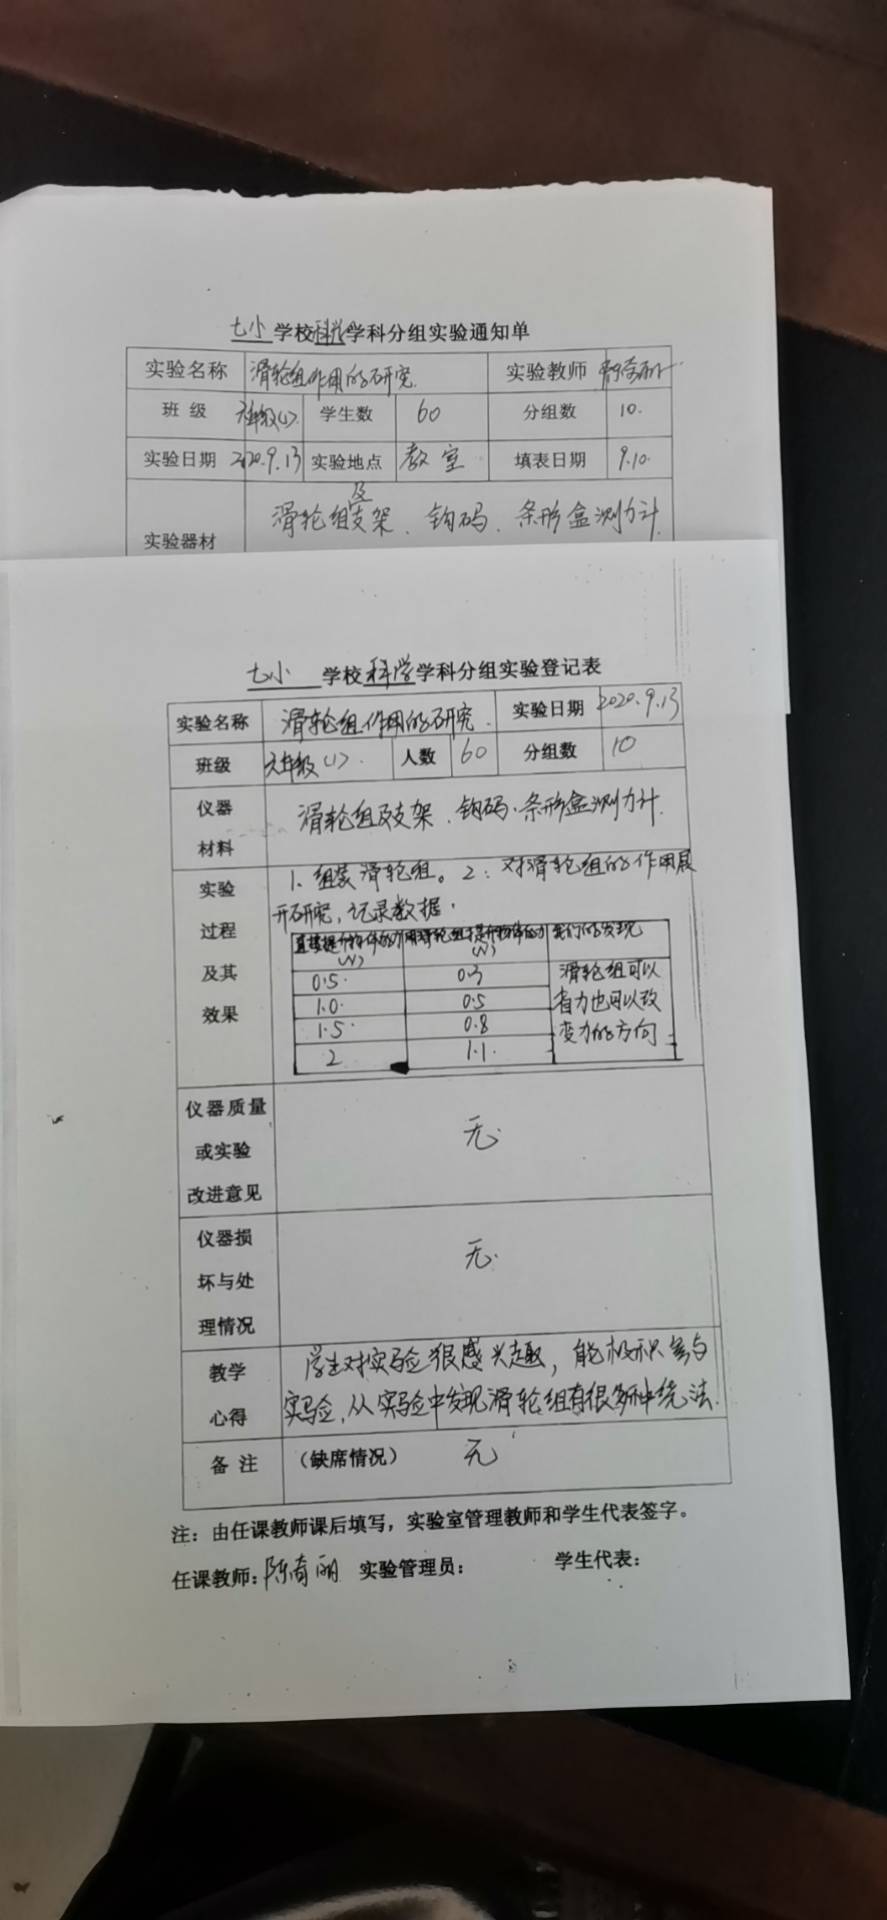 七小 学校科学学科分组实验通知单
实验名称 滑轮组作用的研究. 实验教师
班 级 六年级(1). 学生数 60 分组数 10.
实验日期 2020.9.13 实验地点 教室 填表日期 9.10.
实验器材 滑轮组及支架、钩码、条形盒测力计
七小 学校科学学科分组实验登记表
实验名称 滑轮组作用的研究. 实验日期 2020.9.13
班级 六年级(1). 人数 60 分组数 10
仪器
材料
滑轮组及支架、钩码、条形盒测力计.
实验
过程
及其
效果
1、组装滑轮组。2、对滑轮组的作用展
开研究,记录数据.
直接提升物体的力(N) 用滑轮组提升物体的力(N) 我们的发现
0.5. 0.3 滑轮组可以
1.0. 0.5 省力也可以改
1.5. 0.8 变力的方向
2 1.1.
仪器质量
或实验
改进意见
无.
仪器损
坏与处
理情况
无.
教学
心得
学生对实验很感兴趣,能积极参与
实验,从实验中发现滑轮组有很多种绕法.
备 注 (缺席情况) 无
注:由任课教师课后填写,实验室管理教师和学生代表签字。
任课教师: 实验管理员: 学生代表: